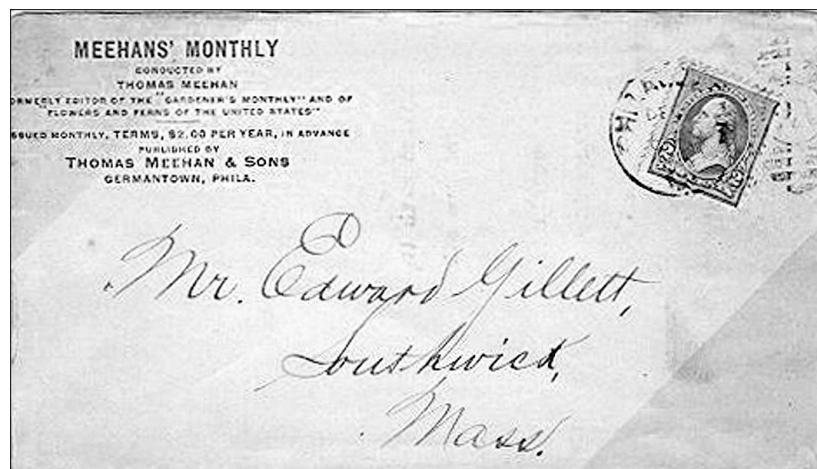 MEEHANS' MONTHLY
CONDUCTED BY
THOMAS MEEHAN
ORMERLY EDITOR OF THE "GARDENER'S MONTHLY" AND OF
"FLOWERS AND FERNS OF THE UNITED STATES"
SSUED MONTHLY, TERMS, $2.00 PER YEAR, IN ADVANCE
PUBLISHED BY
THOMAS MEEHAN & SONS
GERMANTOWN, PHILA.
Mr. Edward Gillett,
Southwick,
Mass.